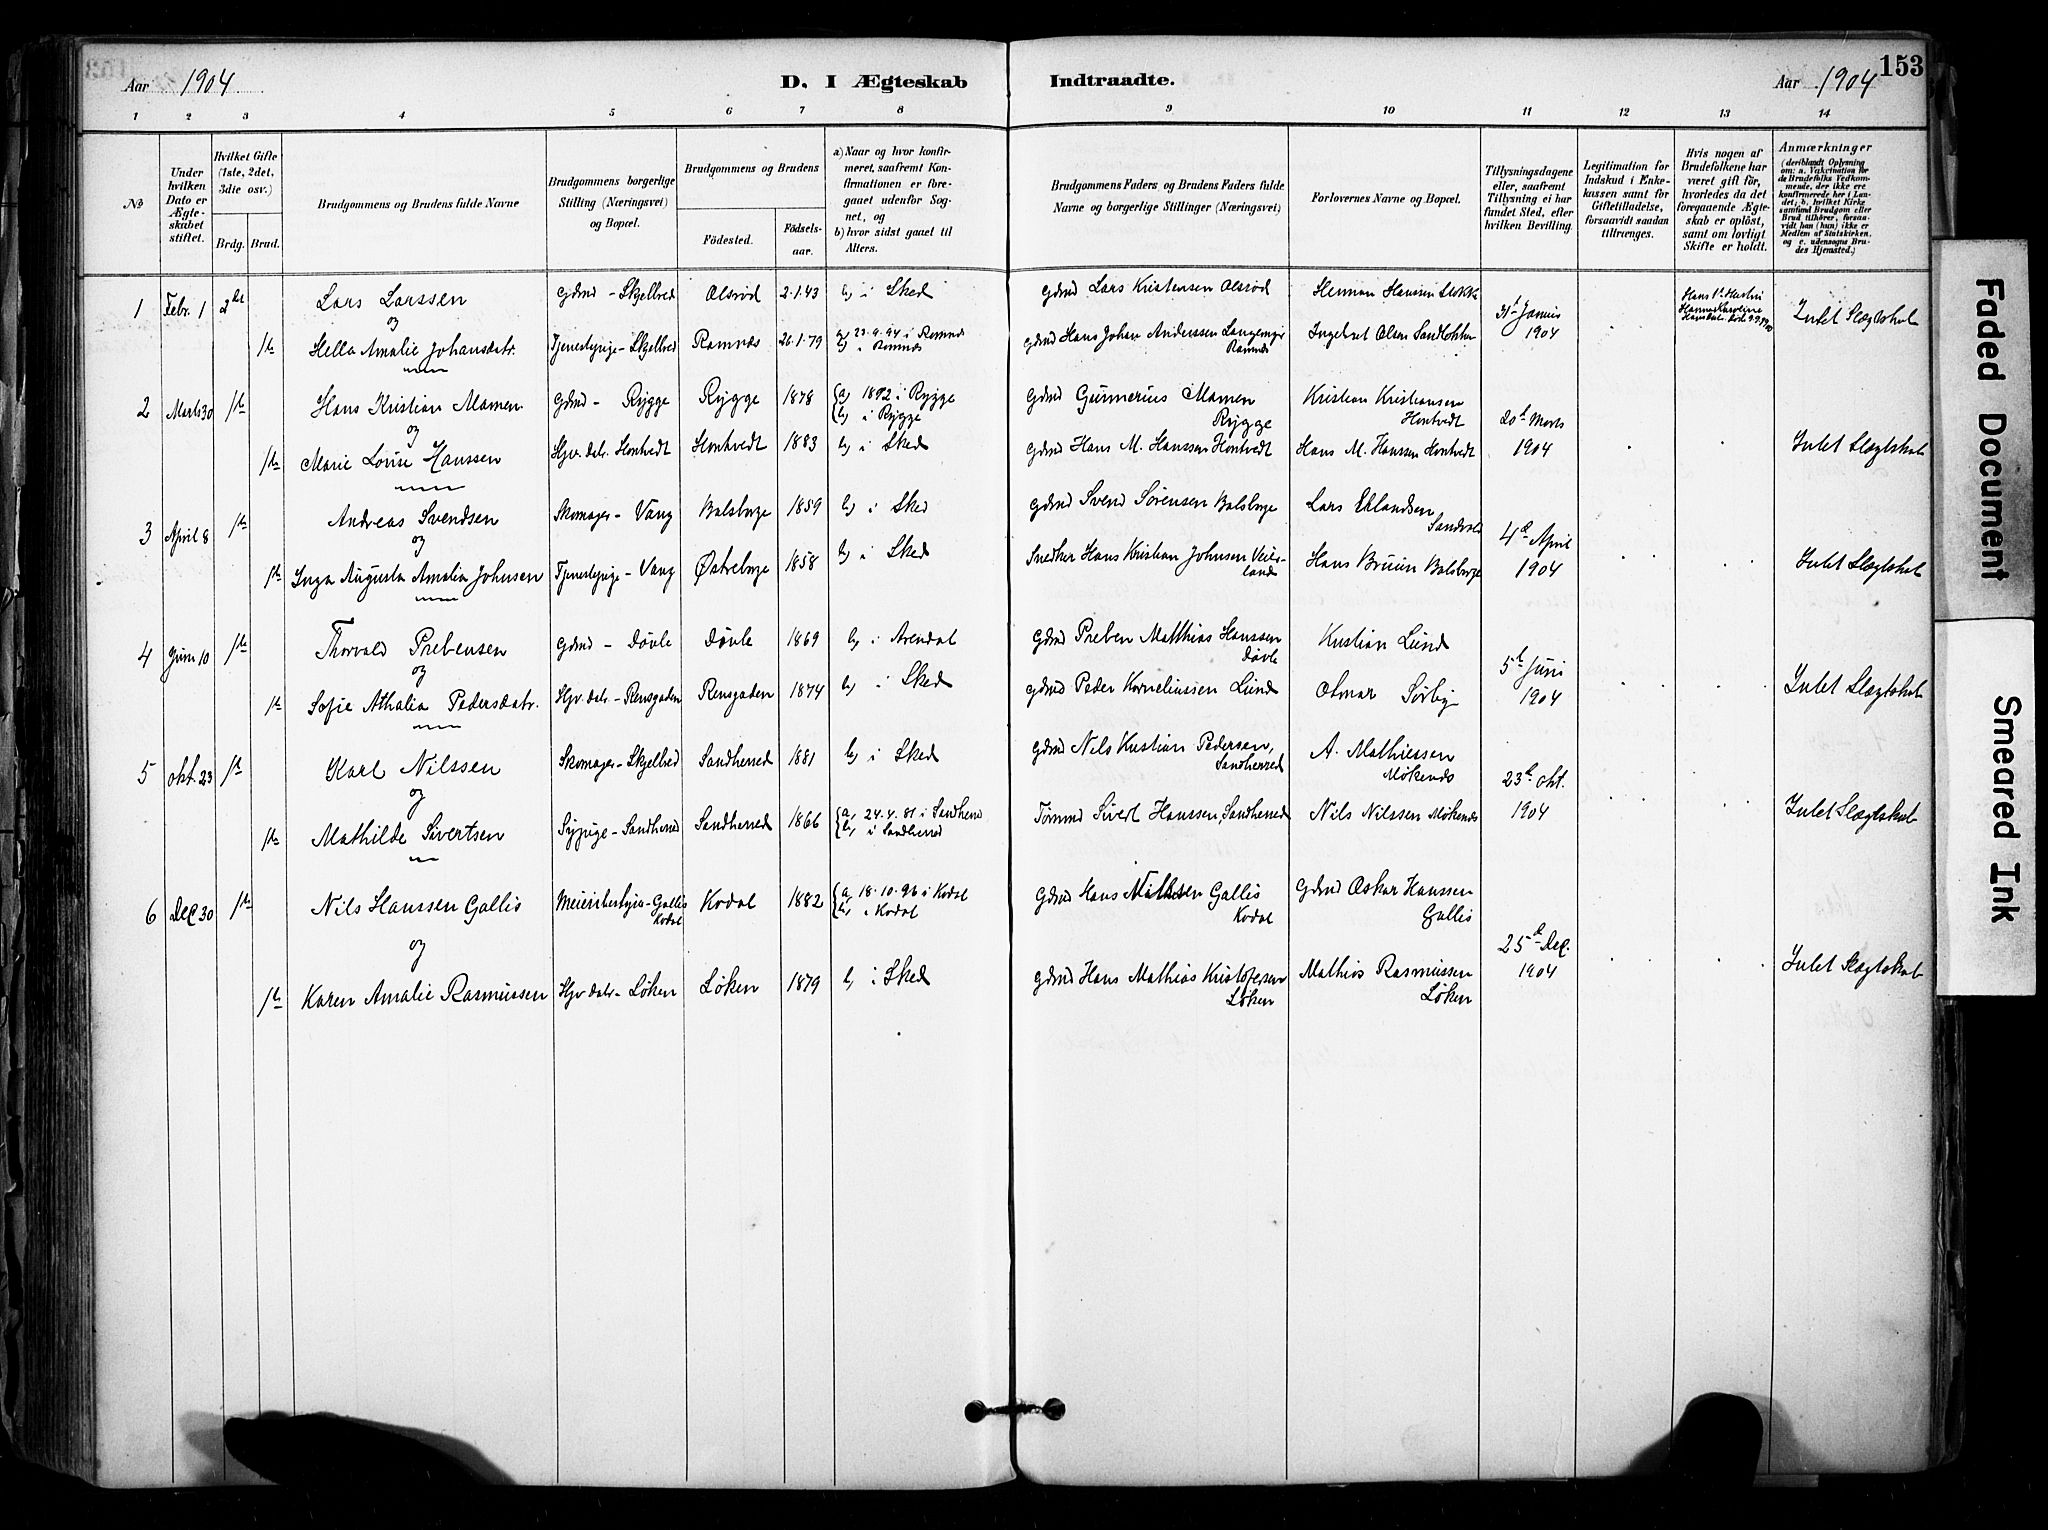 Aar 1904 D. I Ægteskab Indtraadte. Aar 1904 153
1 2 3 4 5 6 7 8 9 10 11 12 13 14
№
Under hvilken Dato er Ægteskabet stiftet.
Hvilket Gifte (1ste, 2det, 3die osv.)
Brdg. Brud.
Brudgommens og Brudens fulde Navne
Brudgommens borgerlige Stilling (Næringsvei) og Bopæl.
Brudgommens og Brudens
Födested. Födsels-aar.
a) Naar og hvor konfirmeret, saafremt Konfirmationen er foregaaet udenfor Sognet, og
b) hvor sidst gaaet til Alters.
Brudgommens Faders og Brudens Faders fulde Navne og borgerlige Stillinger (Næringsvei)
Forlovernes Navne og Bopæl.
Tillysningsdagene eller, saafremt Tillysning ei har fundet Sted, efter hvilken Bevilling.
Legitimation for Indskud i Enkekassen samt for Giftetilladelse, forsaavidt saadan tiltrænges.
Hvis nogen af Brudefolkene har været gift för, hvorledes da det foregaaende Ægteskab er oplöst, samt om lovligt Skifte er holdt.
Anmærkninger (deriblandt Oplysning om: a. Vakcination for de Brudefolks Vedkommende, der ikke ere konfirmerede her i Landet; b. hvilket Kirkesamfund Brudgom eller Brud tilhörer, forsaavidt han (hun) ikke er Medlem af Statskirken, og c. udensogns Brudes Hjemsted.)
1 Febr. 1 2det Lars Larssen Gdmd - Skjelbred Olsrød 2.1.43 b, i Skee Gdmd Lars Kristensen Olsrød Herman Hanssen Stokke 31te Januar Intet Slægtskab
og
1ste Hella Amalie Johansdatr. Tjenestepige - Skjelbred Ramnes 26.1.79 a, 23.9.94 i Ramnes b, i Ramnes Gdmd Hans Johan Anderssen Ramnes Ingebret Olsen 1904
2 Marts 30 1ste Hans Kristian Mamen Gdmd - Rygge Rygge 1878 a, 1892 i Rygge b, i Rygge Gdmd Gunnerius Mamen Rygge Kristian Kristiansen Hontvedt 20de Marts
og
1ste Marie Louise Hanssen Hjv. datr. Hontvedt Hontvedt 1883 b, i Skee Gdmd Hans M. Hanssen Hontvedt Hans M. Hanssen Hontvedt 1904 Intet Slægtskab
3 April 8 1ste Andreas Svendsen Skomager - Vang Bølsborge 1859 b, i Skee Gdmd Svend Sørensen Bølsborge Lars 4de April
og
1ste Inga Augusta Amalia Johnsen Tjenestepige - Vang Østreborge 1858 b, i Skee Snedker Hans Kristian Johnsen Hans Bruun Bølsborge 1904 Intet Slægtskab
4 Juni 10 1ste Thorvald Prebensen Gdmd - Døvle Døvle 1869 b, i Arendal Gdmd Preben Matthias Hanssen Døvle Kristian Lund 5te Juni
og
1ste Sofie Athalia Pedersdatr. Hjv. datr. - Rensgaden Rensgaden 1874 b, i Skee Gdmd Peder Korneliussen Lund Otmar Sørby 1904 Intet Slægtskab
5 Okt. 23 1ste Karl Nilssen Skomager - Skjelbred Sandherred 1881 b, i Skee Gdmd Nils Kristian Pedersen, Sandherred A. Mathiessen Møkenes 23de Okt.
og
1ste Mathilde Sivertsen Sypige - Sandherred Sandherred 1866 a, 24.4.81 i Sandherred b, i Sandherred Tømmd Sivert Hanssen, Sandherred Nils Nilssen Møkenes 1904 Intet Slægtskab
6 Dec. 30 1ste Nils Hanssen Gallis Meieribestyrer - Gallis Kodal Kodal 1882 a, 18.10.96 i Kodal b, i Kodal Gdmd Hans Nilssen Gallis Kodal Gdmd Oskar Hanssen Gallis 25de Dec.
og
1ste Karen Amalie Rasmussen Hjv. datr. - Løken Løken 1879 b, i Skee Gdmd Hans Mathias Kristofersen Løken Mathias Rasmussen Løken 1904 Intet Slægtskab
Faded Document
Smeared Ink